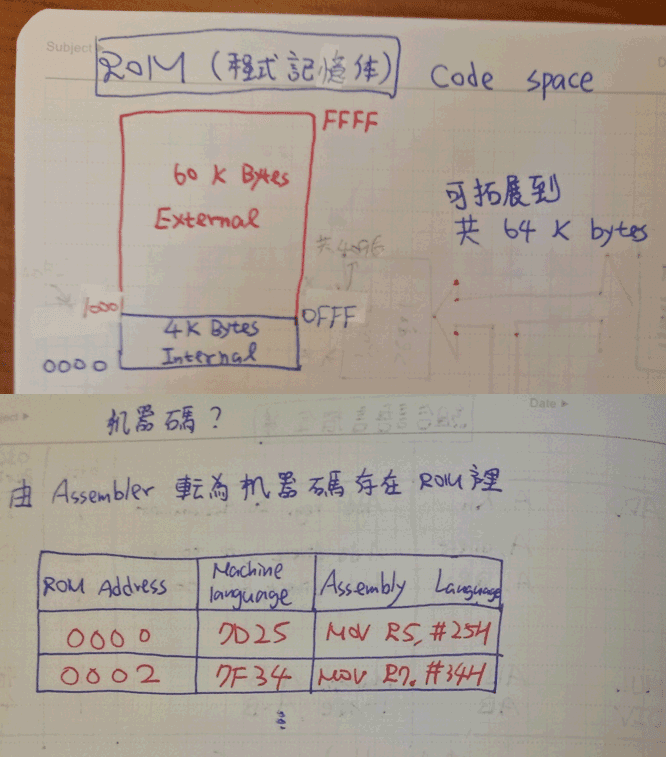 Subject
ROM (程式記憶体) Code space
FFFF
60 K Bytes
External
可拓展到
共 64 K bytes
共4096
1000
0FFF
4K Bytes
Internal
0000
Date
机器碼？
由 Assembler 転為机器碼存在 ROM 裡
ROM Address Machine language Assembly Language
0000 7D25 MOV R5, #25H
0002 7F34 MOV R7, #34H